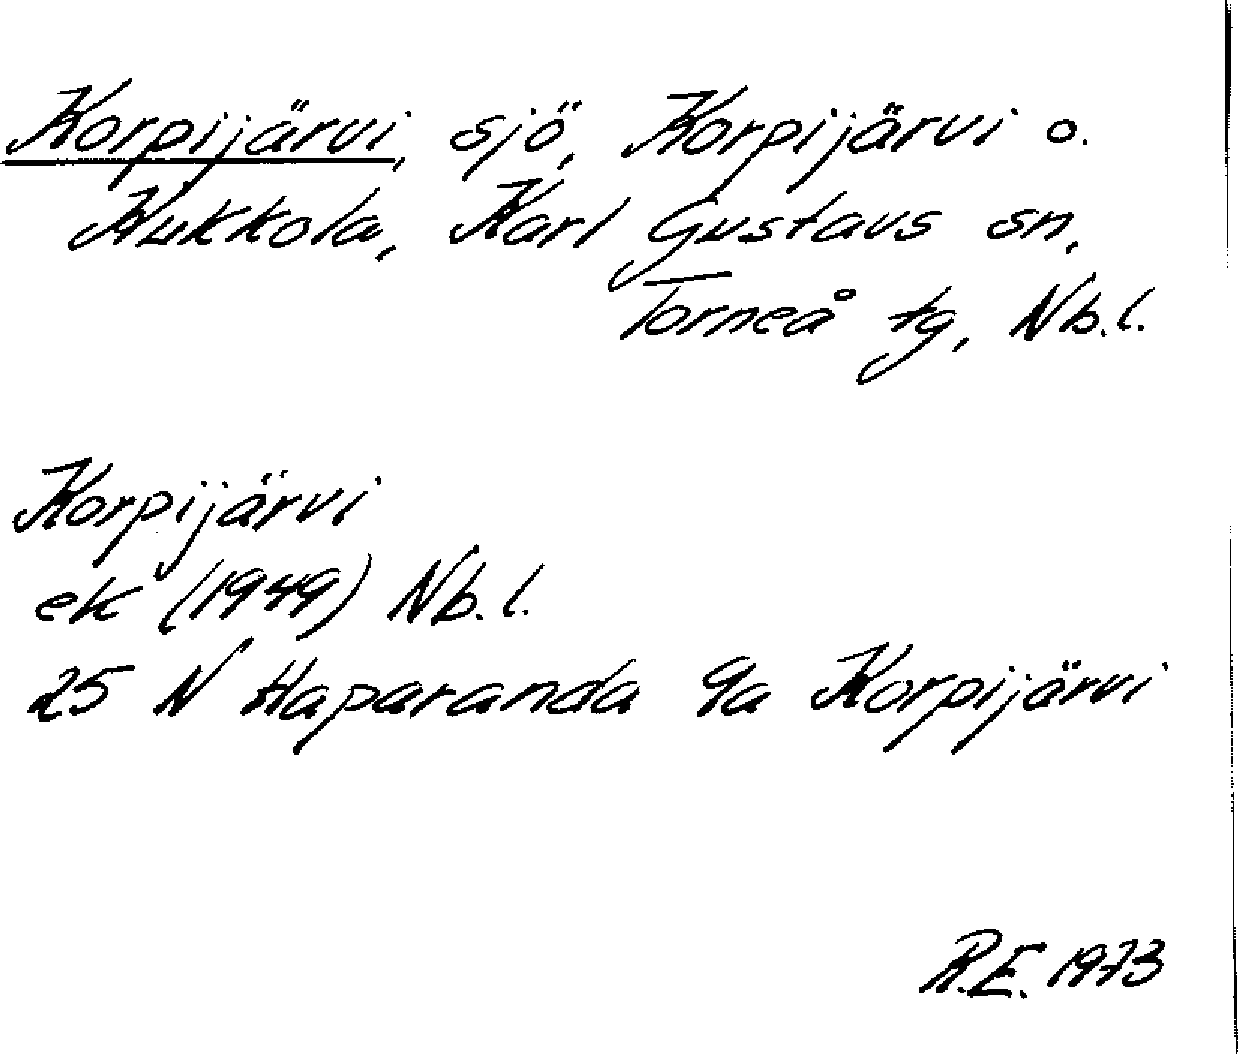 Korpijärvi, sjö, Korpijärvi o.
Kukkola, Karl Gustavs sn,
Torneå tg, Nb.l.
Korpijärvi
ek (1949) Nb.l.
25 N Haparanda 9a Korpijärvi
R.E. 1973